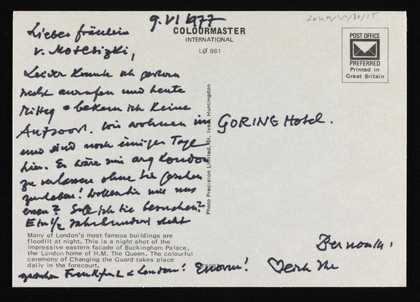 9. VI 1977
Liebes Fräulein
v. Motesizki,
Leider konnte ich gestern
nicht anrufen und heute
Mittag bekam ich keine
Antwort. Wir wohnen im GORING Hotel.
und sind noch einige Tage
hier. Es wäre mir arg London
zu verlassen ohne Sie gesehen
zu haben! Wollen Sie mit uns
essen? Soll ich Sie besuchen?
Ein ½ Jahrhundert steht
zwischen Frankfurt & London! Enorm!
Ihr
COLOURMASTER
INTERNATIONAL
LØ 961
POST OFFICE
PREFERRED
Printed in
Great Britain
Photo Precision Limited, St. Ives, Huntingdon
Many of London's most famous buildings are
floodlit at night. This is a night shot of the
impressive eastern facade of Buckingham Palace,
the London home of H.M. The Queen. The colourful
ceremony of Changing the Guard takes place
daily in the forecourt.